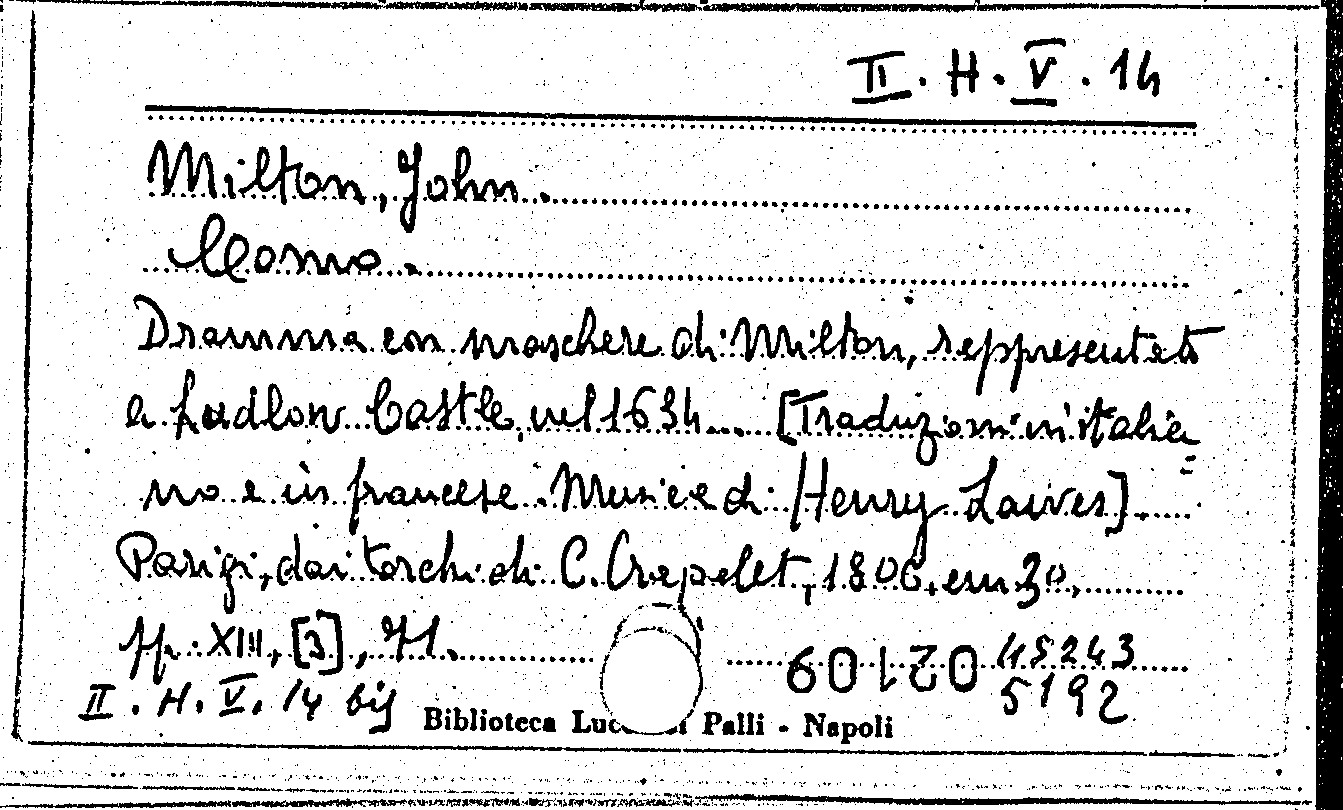 II. H. V. 14
Milton, John.
Como.
Dramma con maschere di Milton, reppresentato
a Ludlow Castle, nel 1634... [Traduzioni in italia=
no e in francese. Musice di Henry Lawes].
Parigi, dai torchi di C. Crapelet, 1806, cm 30,
pp. XIII, [3], 71.
021109 45243
II. H. V. 14 bis 5192
Biblioteca Luc Palli - Napoli